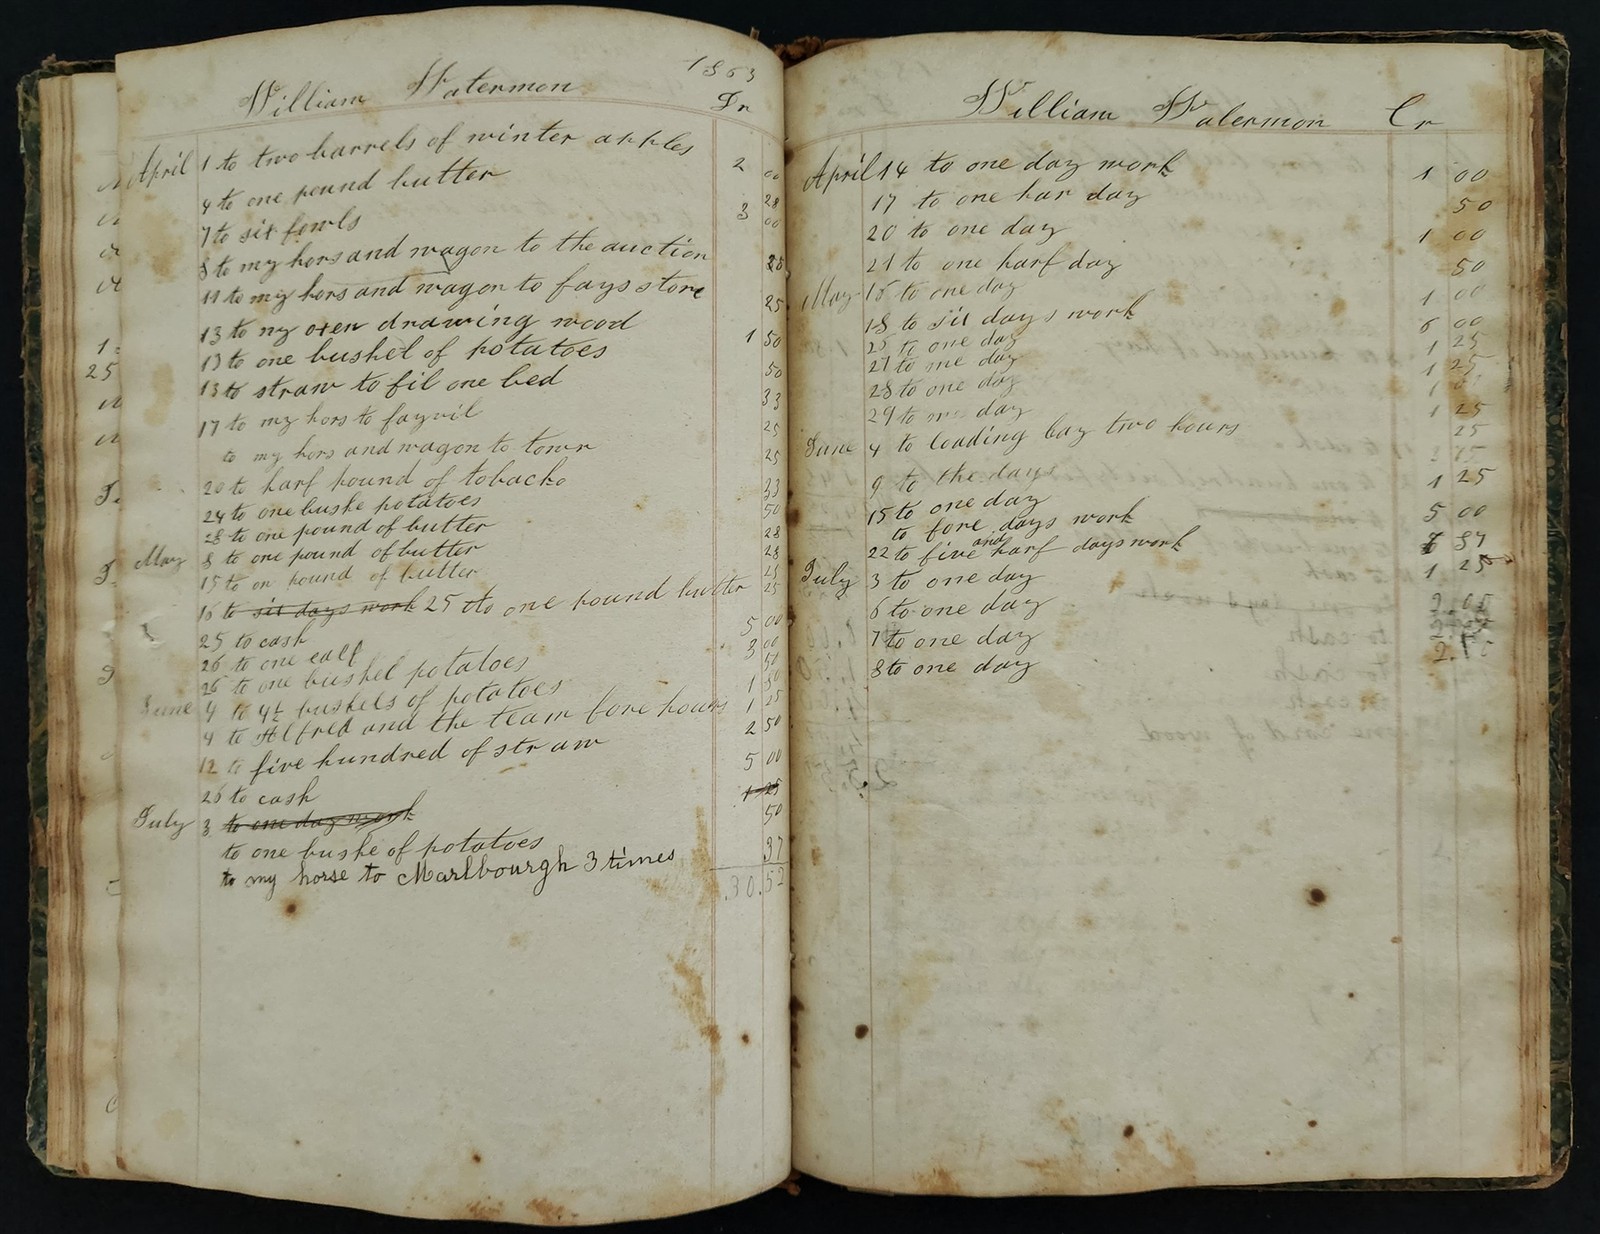 1863
William Watermon Dr
April 1 to two barrels of winter apples 2 00
4 to one pound butter 28
7 to six fowls 3 00
8 to my hors and wagon to the auction 25
11 to my hors and wagon to fays store 25
13 to my oxen drawing wood 1 50
13 to one bushel of potatoes 50
13 to straw to fil one bed 33
17 to my hors to fayvil 25
to my hors and wagon to town 25
20 to harf pound of tobacko 33
24 to one bushe potatoes 50
28 to one pound of butter 28
May 8 to one pound of butter 28
15 to on pound of butter 25
16 to six days work 25 to one pound butter 25
25 to cash 5 00
26 to one calf 3 00
26 to one bushel potatoes 50
June 4 to 4½ bushels of potatoes 1 50
4 to Alfred and the team fore hours 1 25
12 to five hundred of straw 2 50
26 to cash 5 00
July 3 to one day work 1 25
to one bushe of potatoes 50
to my horse to Marlbourgh 3 times 37
30.52
William Watermon Cr
April 14 to one day work 1 00
17 to one har day 50
20 to one day 1 00
21 to one harf day 50
May 16 to one day 1 00
18 to six days work 6 00
25 to one day 1 25
27 to one day 1 25
28 to one day 1
29 to one day 1 25
June 4 to loading hay two hours 25
9 to the days
15 to one day 1 25
to fore days work 5 00
22 to five and harf days work 87
July 3 to one day 1 25
6 to one day
7 to one day
8 to one day